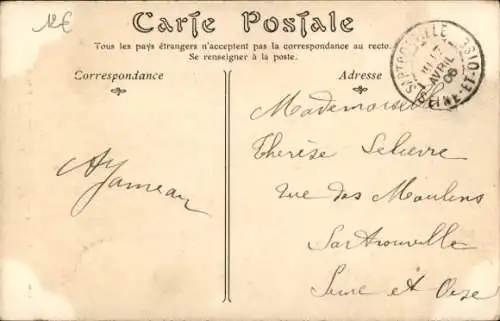 12€
Carte Postale
Tous les pays étrangers n'acceptent pas la correspondance au recto.
Se renseigner à la poste.
Correspondance
Adresse
SARTROUVILLE
AVRIL
06
SEINE-ET-OISE
Mademoiselle
Thérèse Lelievre
Rue des Moulins
Sartrouville
Seine et Oise